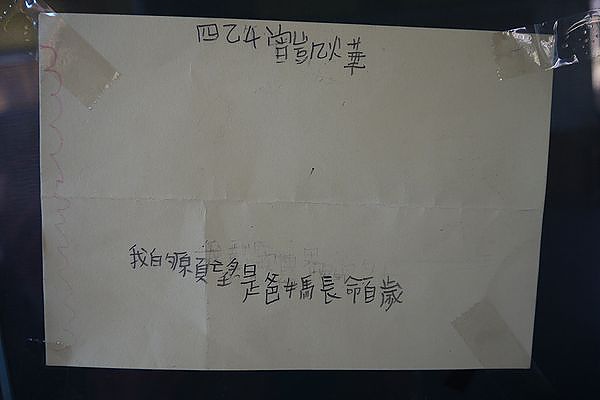 四乙4曾凱燁
我的願望是爸媽長命百歲